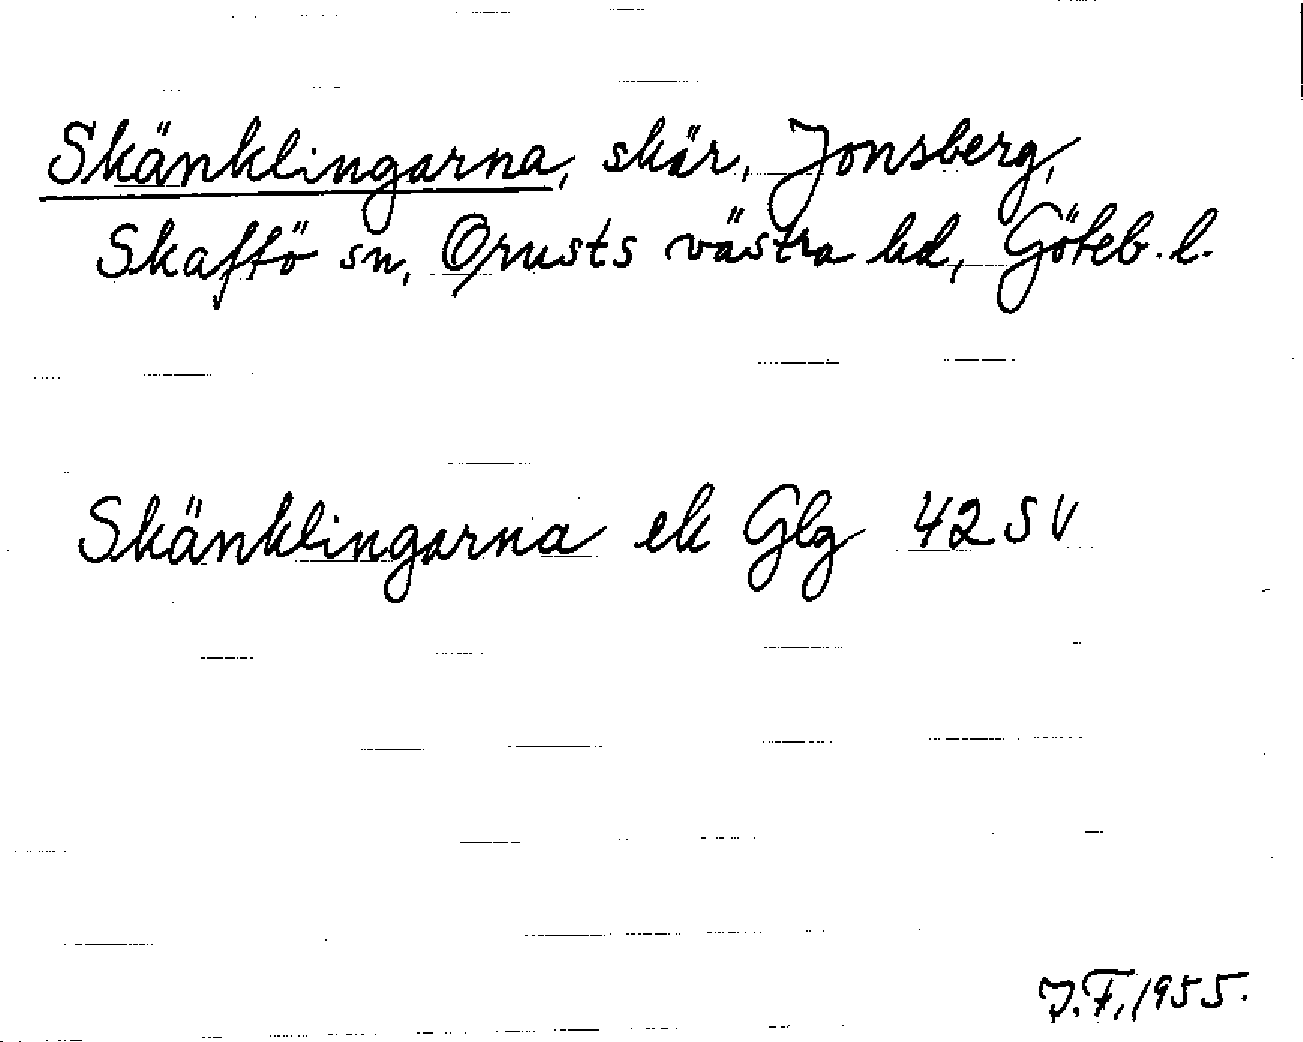 Skänklingarna, skär, Jonsberg,
Skaftö sn, Orusts västra hd, Göteb. l.
Skänklingarna ek Glg 42 SV
J.F. 1955.